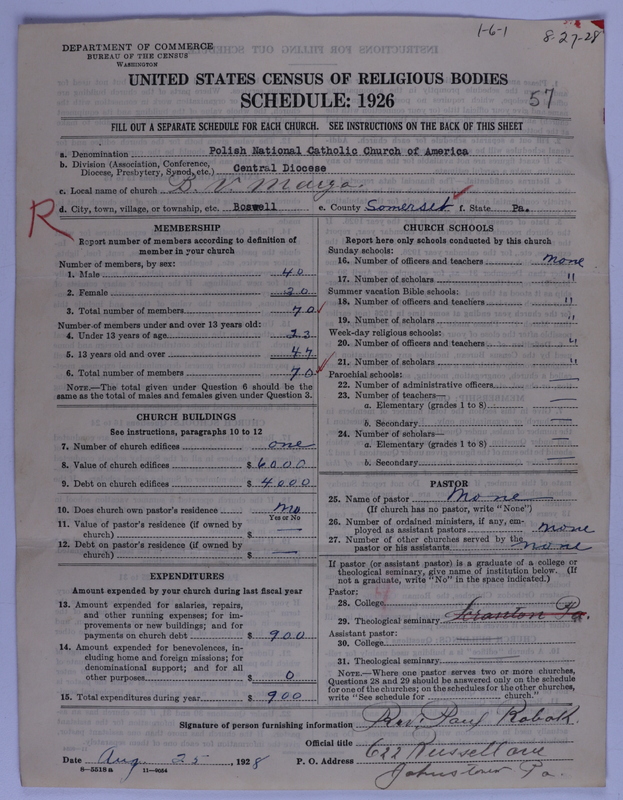 1-6-1
8-27-28
DEPARTMENT OF COMMERCE
BUREAU OF THE CENSUS
WASHINGTON
UNITED STATES CENSUS OF RELIGIOUS BODIES
SCHEDULE: 1926
57
FILL OUT A SEPARATE SCHEDULE FOR EACH CHURCH. SEE INSTRUCTIONS ON THE BACK OF THIS SHEET
a. Denomination Polish National Catholic Church of America
b. Division (Association, Conference, Diocese, Presbytery, Synod, etc.) Central Diocese
c. Local name of church B. V. Marya.
R
d. City, town, village, or township, etc. Boswell e. County Somerset f. State Pa.
MEMBERSHIP
Report number of members according to definition of
member in your church
Number of members, by sex:
1. Male 40
2. Female 30
3. Total number of members 70
Number of members under and over 13 years old:
4. Under 13 years of age 23
5. 13 years old and over 47
6. Total number of members 70
NOTE.—The total given under Question 6 should be
same as the total of males and females given under Question 3.
CHURCH BUILDINGS
See instructions, paragraphs 10 to 12
7. Number of church edifices one
8. Value of church edifices $ 6000
9. Debt on church edifices $ 4000
10. Does church own pastor's residence No
Yes or No
11. Value of pastor's residence (if owned by
church) $ —
12. Debt on pastor's residence (if owned by
church) $ —
EXPENDITURES
Amount expended by your church during last fiscal year
13. Amount expended for salaries, repairs,
and other running expenses; for im-
provements or new buildings; and for
payments on church debt $ 900
14. Amount expended for benevolences, in-
cluding home and foreign missions; for
denominational support; and for all
other purposes $ 0
15. Total expenditures during year $ 900
CHURCH SCHOOLS
Report here only schools conducted by this church
Sunday schools:
16. Number of officers and teachers None
17. Number of scholars "
Summer vacation Bible schools:
18. Number of officers and teachers "
19. Number of scholars "
Week-day religious schools:
20. Number of officers and teachers "
21. Number of scholars "
Parochial schools:
22. Number of administrative officers —
23. Number of teachers—
a. Elementary (grades 1 to 8) —
b. Secondary —
24. Number of scholars—
a. Elementary (grades 1 to 8) —
b. Secondary —
PASTOR
25. Name of pastor None
(If church has no pastor, write "None")
26. Number of ordained ministers, if any, em-
ployed as assistant pastors none
27. Number of other churches served by the
pastor or his assistants none
If pastor (or assistant pastor) is a graduate of a college or
theological seminary, give name of institution below. (If
not a graduate, write "No" in the space indicated.)
Pastor:
28. College
29. Theological seminary Scranton Pa.
Assistant pastor:
30. College
31. Theological seminary
NOTE.—Where one pastor serves two or more churches,
Questions 28 and 29 should be answered only on the schedule
for one of the churches; on the schedules for the other churches,
write "See schedule for church."
Signature of person furnishing information Rev. Paul Robak
Official title
622 Russell ave
Date Aug 25, 1928 P. O. Address
Johnstown Pa.
8—5518a 11—9054